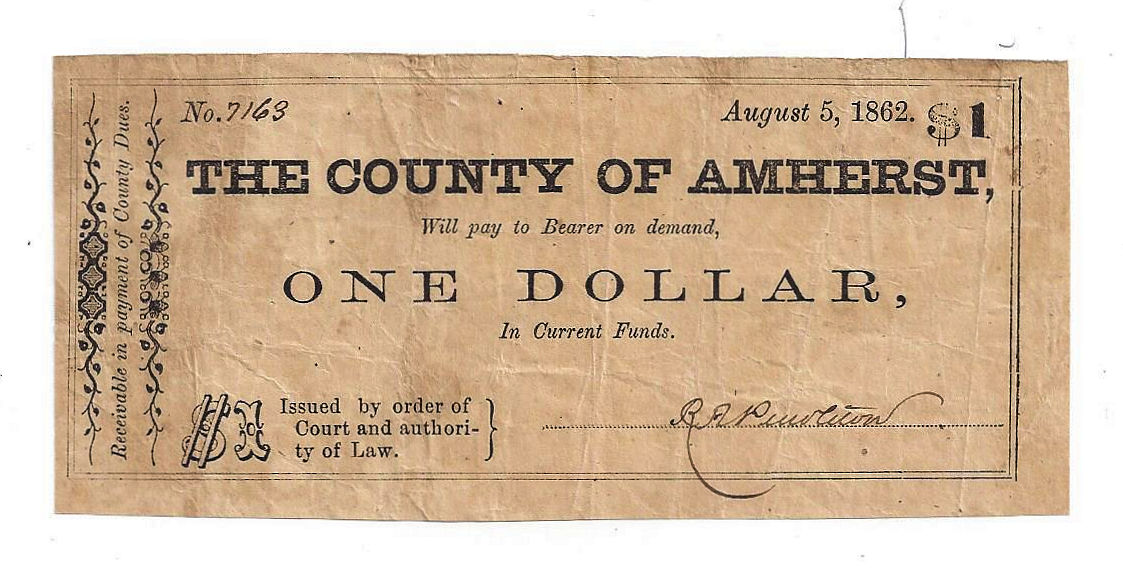 No. 7163
August 5, 1862. $1
THE COUNTY OF AMHERST,
Will pay to Bearer on demand,
ONE DOLLAR,
In Current Funds.
$1
Issued by order of
Court and authori-
ty of Law.
R A Pendleton
Receivable in payment of County Dues.